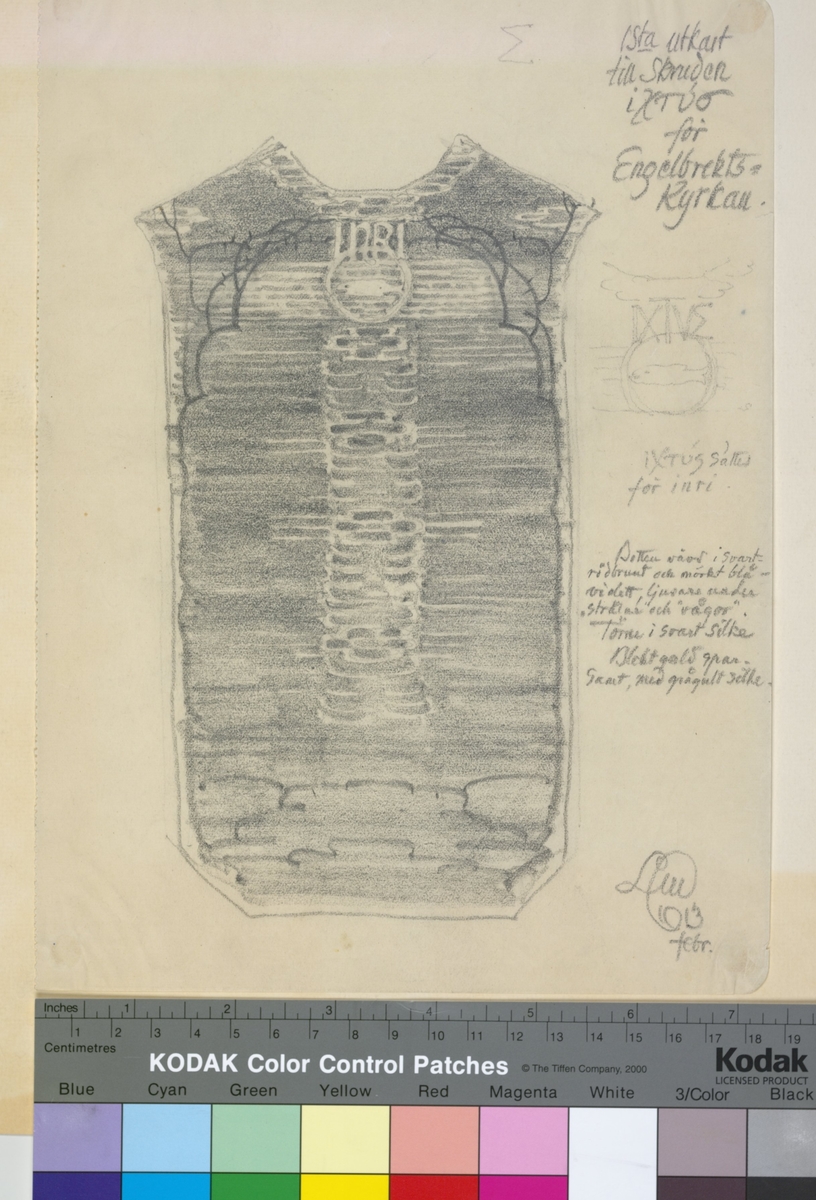 Σ
1sta utkast
till Skruden
iχτύσ
för
Engelbrekts=
Kyrkan.
INRI
IXTVΣ
iχτύς sättes
för inri.
Botten vävd i svart-
rödbrunt och mörkt blå-
violett, ljusare under
"strålar" och "vågor".
Törne i svart silke
Blekt guld spar-
samt, med grågult silke.
1913
febr.
Inches 1 2 3 4 5 6 7
1 2 3 4 5 6 7 8 9 10 11 12 13 14 15 16 17 18 19
Centimetres
KODAK Color Control Patches © The Tiffen Company, 2000 Kodak
LICENSED PRODUCT
Blue Cyan Green Yellow Red Magenta White 3/Color Black